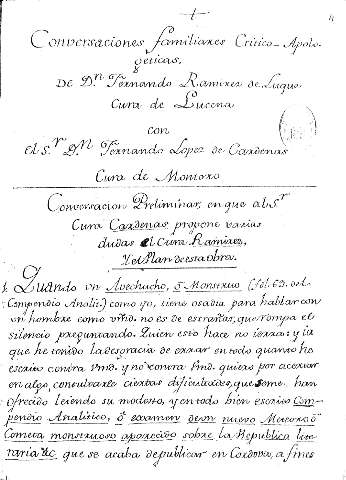 Conversaciones familiares Critico-Apolo-
geticas.
De Dn. Fernando Ramirez de Luque
Cura de Lucena
con
el Sr. Dn. Fernando Lopez de Cardenas
Cura de Montoro
Conversacion Preliminar, en que al Sr.
Cura Cardenas propone varias
dudas el Cura Ramirez,
Y el Plan de esta obra.
1. Quando un Avechucho, ò Monstruo (fol. 63. del
Compendio Analit.) como yo, tiene osadia para hablar con
un hombre como vmd. no es de estrañar, que rompa el
silencio preguntando. Quien esto hace no ierra: y ia
que he tenido la desgracia de errar en todo quanto he
escrito contra vmd. y no contra vmd. quiero por acertar
en algo, consultarle ciertas dificultades, que se me han
ofrecido leiendo su modesto, y en todo bien escrito Com-
pendio Analitico, ò examen de un nuevo Meteoro ò
Cometa monstruoso aparecido sobre la Republica lite-
raria &c. que se acaba de publicar en Cordova, a fines